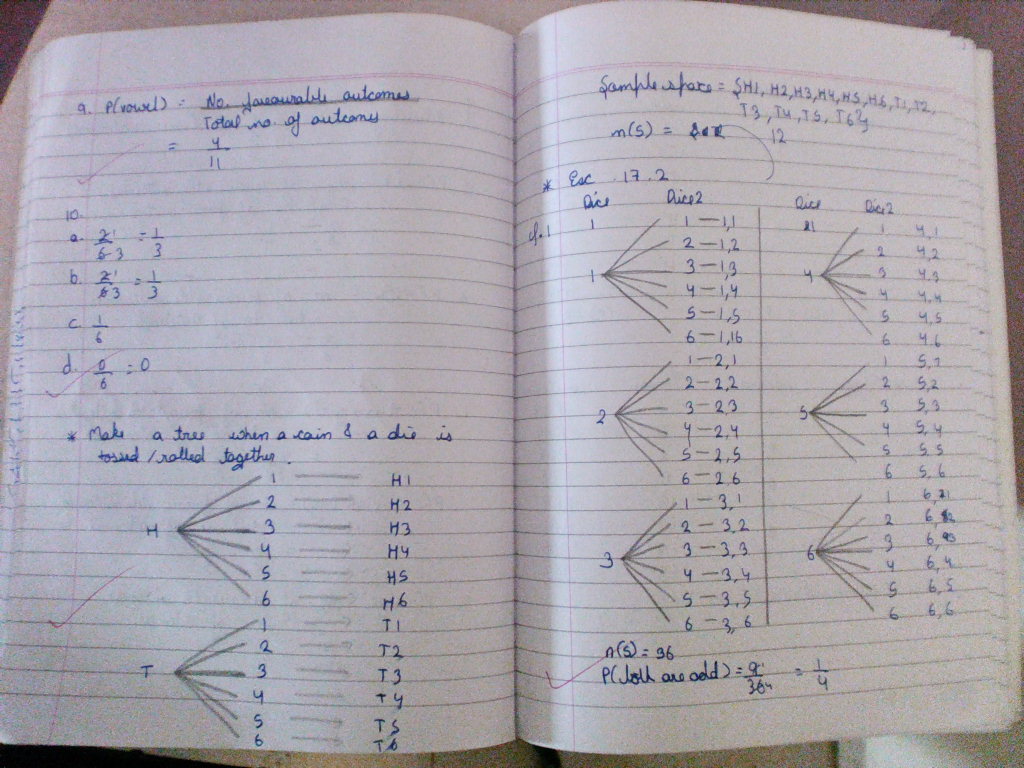 9. P(vowel) = No. favourable outcomes
Total no. of outcomes
= 4
11
10.
a. 2 1 = 1
6 3 3
b. 2 1 = 1
6 3 3
c. 1
6
d. 0 = 0
6
* Make a tree when a coin & a die is
tossed / rolled together.
H
1 H1
2 H2
3 H3
4 H4
5 H5
6 H6
T
1 T1
2 T2
3 T3
4 T4
5 T5
6 T6
Sample space = {H1, H2, H3, H4, H5, H6, T1, T2,
T3, T4, T5, T6}
n(S) = 12
* Exc 17.2
Dice Dice 2
Q.1 1
1
1 — 1,1
2 — 1,2
3 — 1,3
4 — 1,4
5 — 1,5
6 — 1,6
2
1 — 2,1
2 — 2,2
3 — 2,3
4 — 2,4
5 — 2,5
6 — 2,6
3
1 — 3,1
2 — 3,2
3 — 3,3
4 — 3,4
5 — 3,5
6 — 3,6
Dice Dice 2
4
1 4,1
2 4,2
3 4,3
4 4,4
5 4,5
6 4,6
5
1 5,1
2 5,2
3 5,3
4 5,4
5 5,5
6 5,6
6
1 6,1
2 6,2
3 6,3
4 6,4
5 6,5
6 6,6
n(S) = 36
P(both are odd) = 9 1 = 1
36 4 4